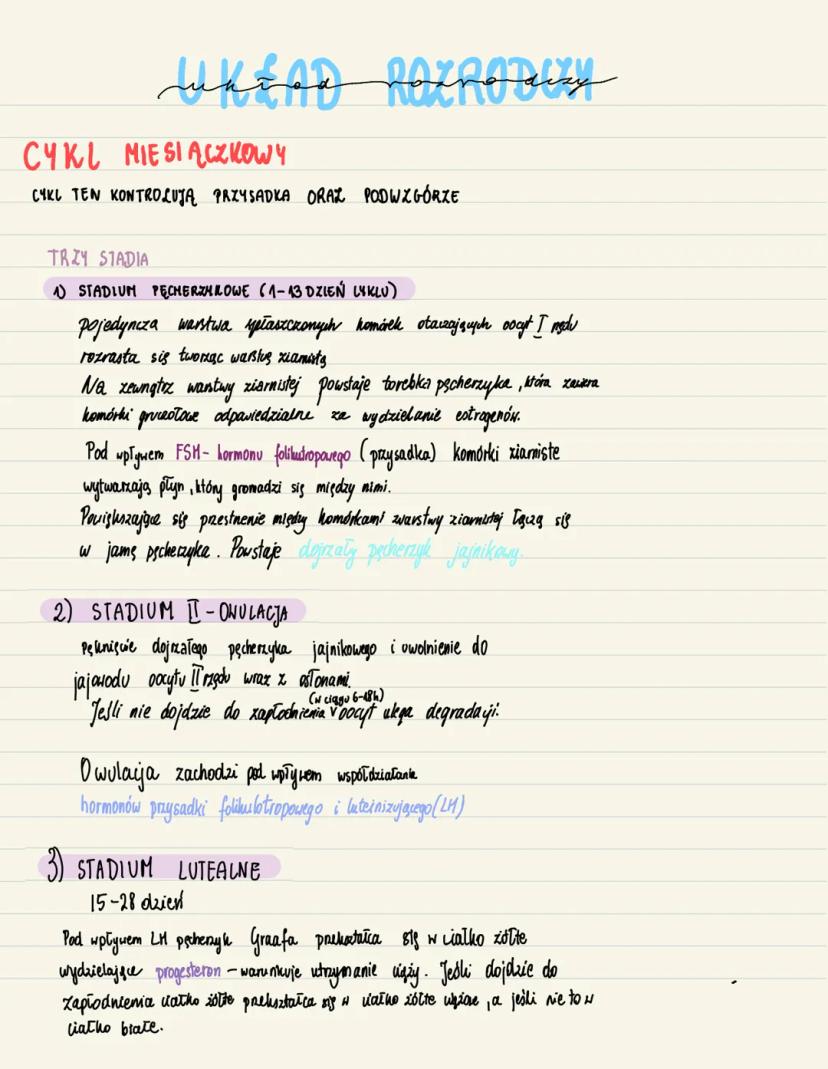 UKŁAD ROZRODCZY
układ rozrodczy
CYKL MIESIĄCZKOWY
CYKL TEN KONTROLUJĄ PRZYSADKA ORAZ PODWZGÓRZE
TRZY STADIA
1) STADIUM PĘCHERZYKOWE (1-13 DZIEŃ CYKLU)
pojedyncza warstwa spłaszczonych komórek otaczających oocyt I rzędu
rozrasta się tworząc warstwę ziarnistą
Na zewnątrz warstwy ziarnistej powstaje torebka pęcherzyka, która zawiera
komórki gruczołowe odpowiedzialne za wydzielanie estrogenów.
Pod wpływem FSH- hormonu folikulotropowego (przysadka) komórki ziarniste
wytwarzają płyn, który gromadzi się między nimi.
Powiększające się przestrzenie między komórkami warstwy ziarnistej łączą się
w jamę pęcherzyka. Powstaje dojrzały pęcherzyk jajnikowy.
2) STADIUM II - OWULACJA
pęknięcie dojrzałego pęcherzyka jajnikowego i uwolnienie do
jajowodu oocytu II rzędu wraz z osłonami.
(w ciągu 6-48h)
Jeśli nie dojdzie do zapłodnienia v oocyt ulega degradacji.
Owulacja zachodzi pod wpływem współdziałania
hormonów przysadki folikulotropowego i luteinizującego (LH)
3) STADIUM LUTEALNE
15-28 dzień
Pod wpływem LH pęcherzyk Graafa przekształca się w ciałko żółte
wydzielające progesteron - warunkuje utrzymanie ciąży. Jeśli dojdzie do
zapłodnienia ciałko żółte przekształca się w ciałko żółte ciążowe, a jeśli nie to w
ciałko białe.